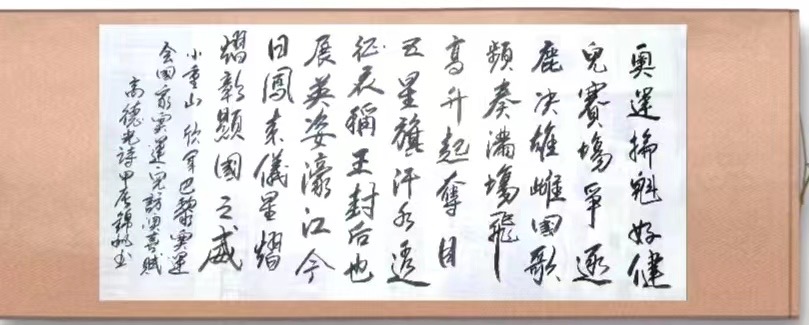 奥運掄魁好健
兒賽塲爭逐
鹿决雄雌國歌
頻奏滿塲飛
高升起奪目
五星旗汗水透
征衣稱王封后也
展英姿濠江今
日鳳來儀星熠
熠彰顯國之威
小重山 欣賀巴黎奥運
会国家奥運兒訪澳喜賦
高德光詩甲辰錦 书